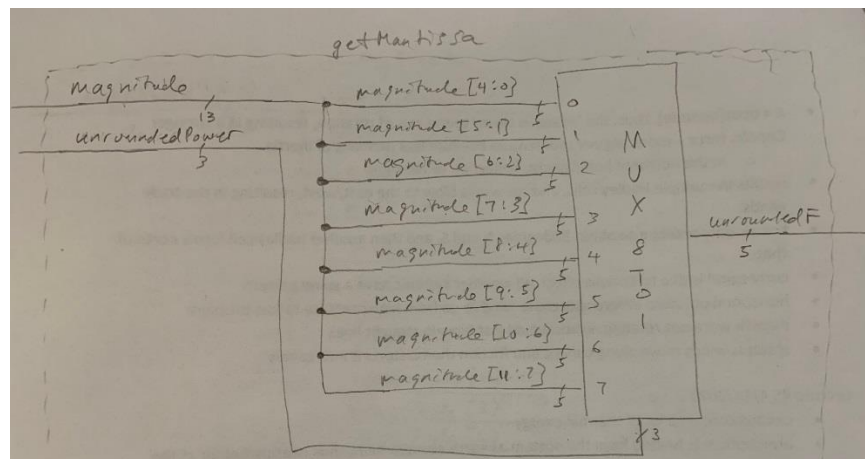 getMantissa
magnitude
13
unroundedPower
3
magnitude [4:0]
5
0
magnitude [5:1]
5
1
magnitude [6:2]
5
2
magnitude [7:3]
5
3
magnitude [8:4]
5
4
magnitude [9:5]
5
5
magnitude [10:6]
5
6
magnitude [11:7]
5
7
M
U
X
8
T
O
1
unroundedF
5
3